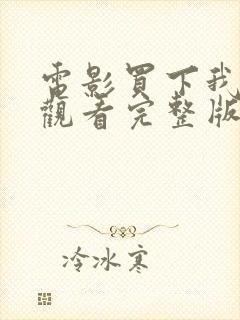 電影買下我
觀看完整版
冷冰寒